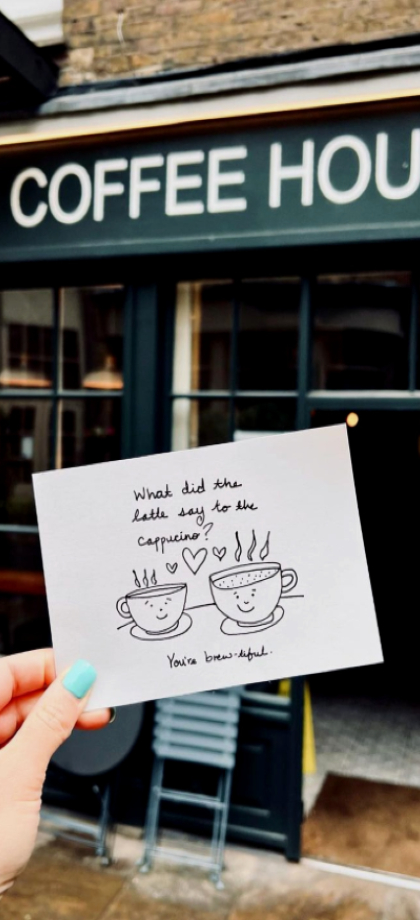 COFFEE HOU
What did the
latte say to the
cappucino?
You're brew-tiful.